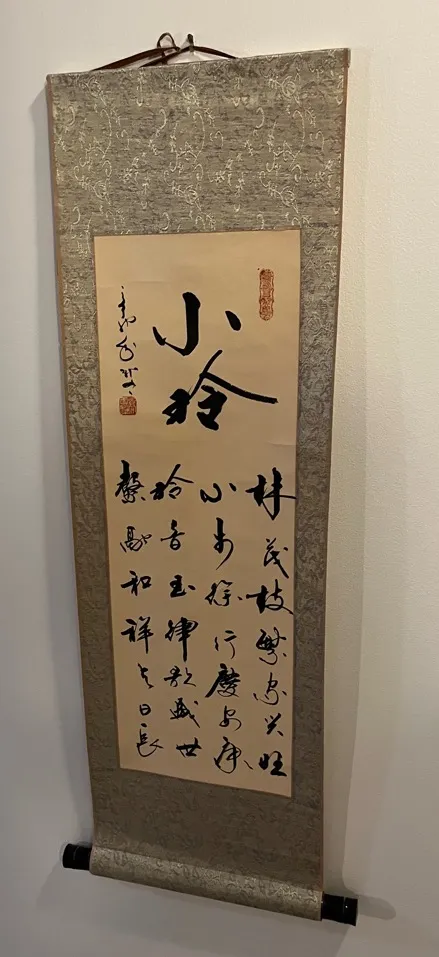 小玲
林茂枝繁家兴旺
小步徐行庆安康
玲音玉律歌盛世
馨融和祥之日长